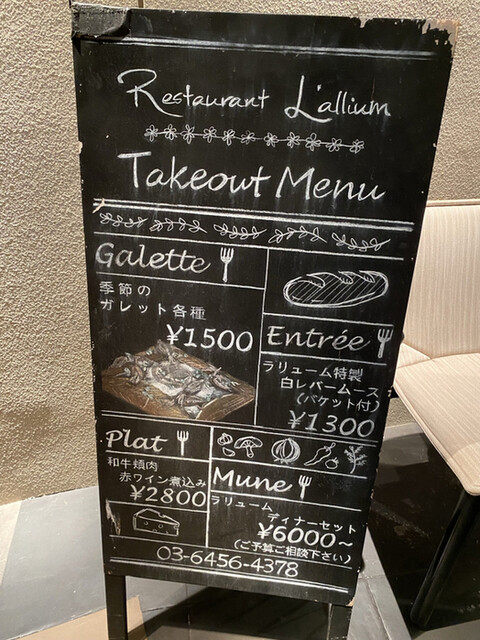 Restaurant L'allium
Takeout Menu
Galette
季節の
ガレット各種
¥1500
Entrée
ラリューム特製
白レバームース
(バケット付)
¥1300
Plat
和牛頬肉
赤ワイン煮込み
¥2800
Mune
ラリューム
ディナーセット
¥6000~
(ご予算ご相談下さい)
03-6456-4378